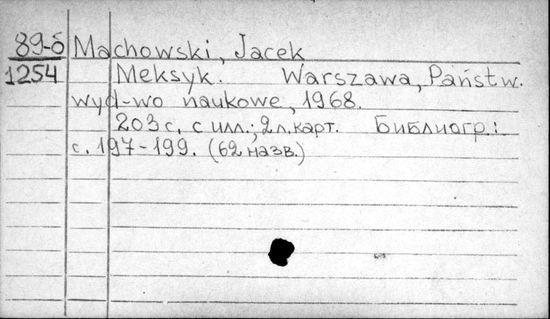 89-б Machowski, Jacek
1254 Meksyk. Warszawa, Państw.
wyd-wo naukowe, 1968.
203 с. с илл.; 2 л. карт. Библиогр.:
с. 197-199. (62 назв.)